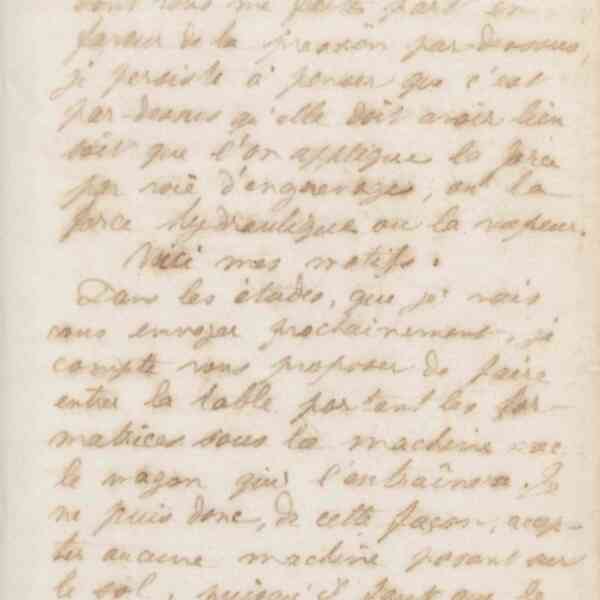 dont vous me faites part en
faveur de la pression par-dessous,
je persiste à penser que c'est
par-dessus qu'elle doit avoir lieu
soit que l'on applique la force
par voie d'engrenages, ou la
force hydraulique ou la vapeur.
Voici mes motifs.
Dans les études, que je vais
vous envoyer prochainement, je
compte vous proposer de faire
entrer la table portant les for-
matrices sous la machine avec
le wagon qui l'entraînera. Je
ne puis donc, de cette façon, accep-
ter aucune machine posant sur
le sol, puisqu'il faut que le